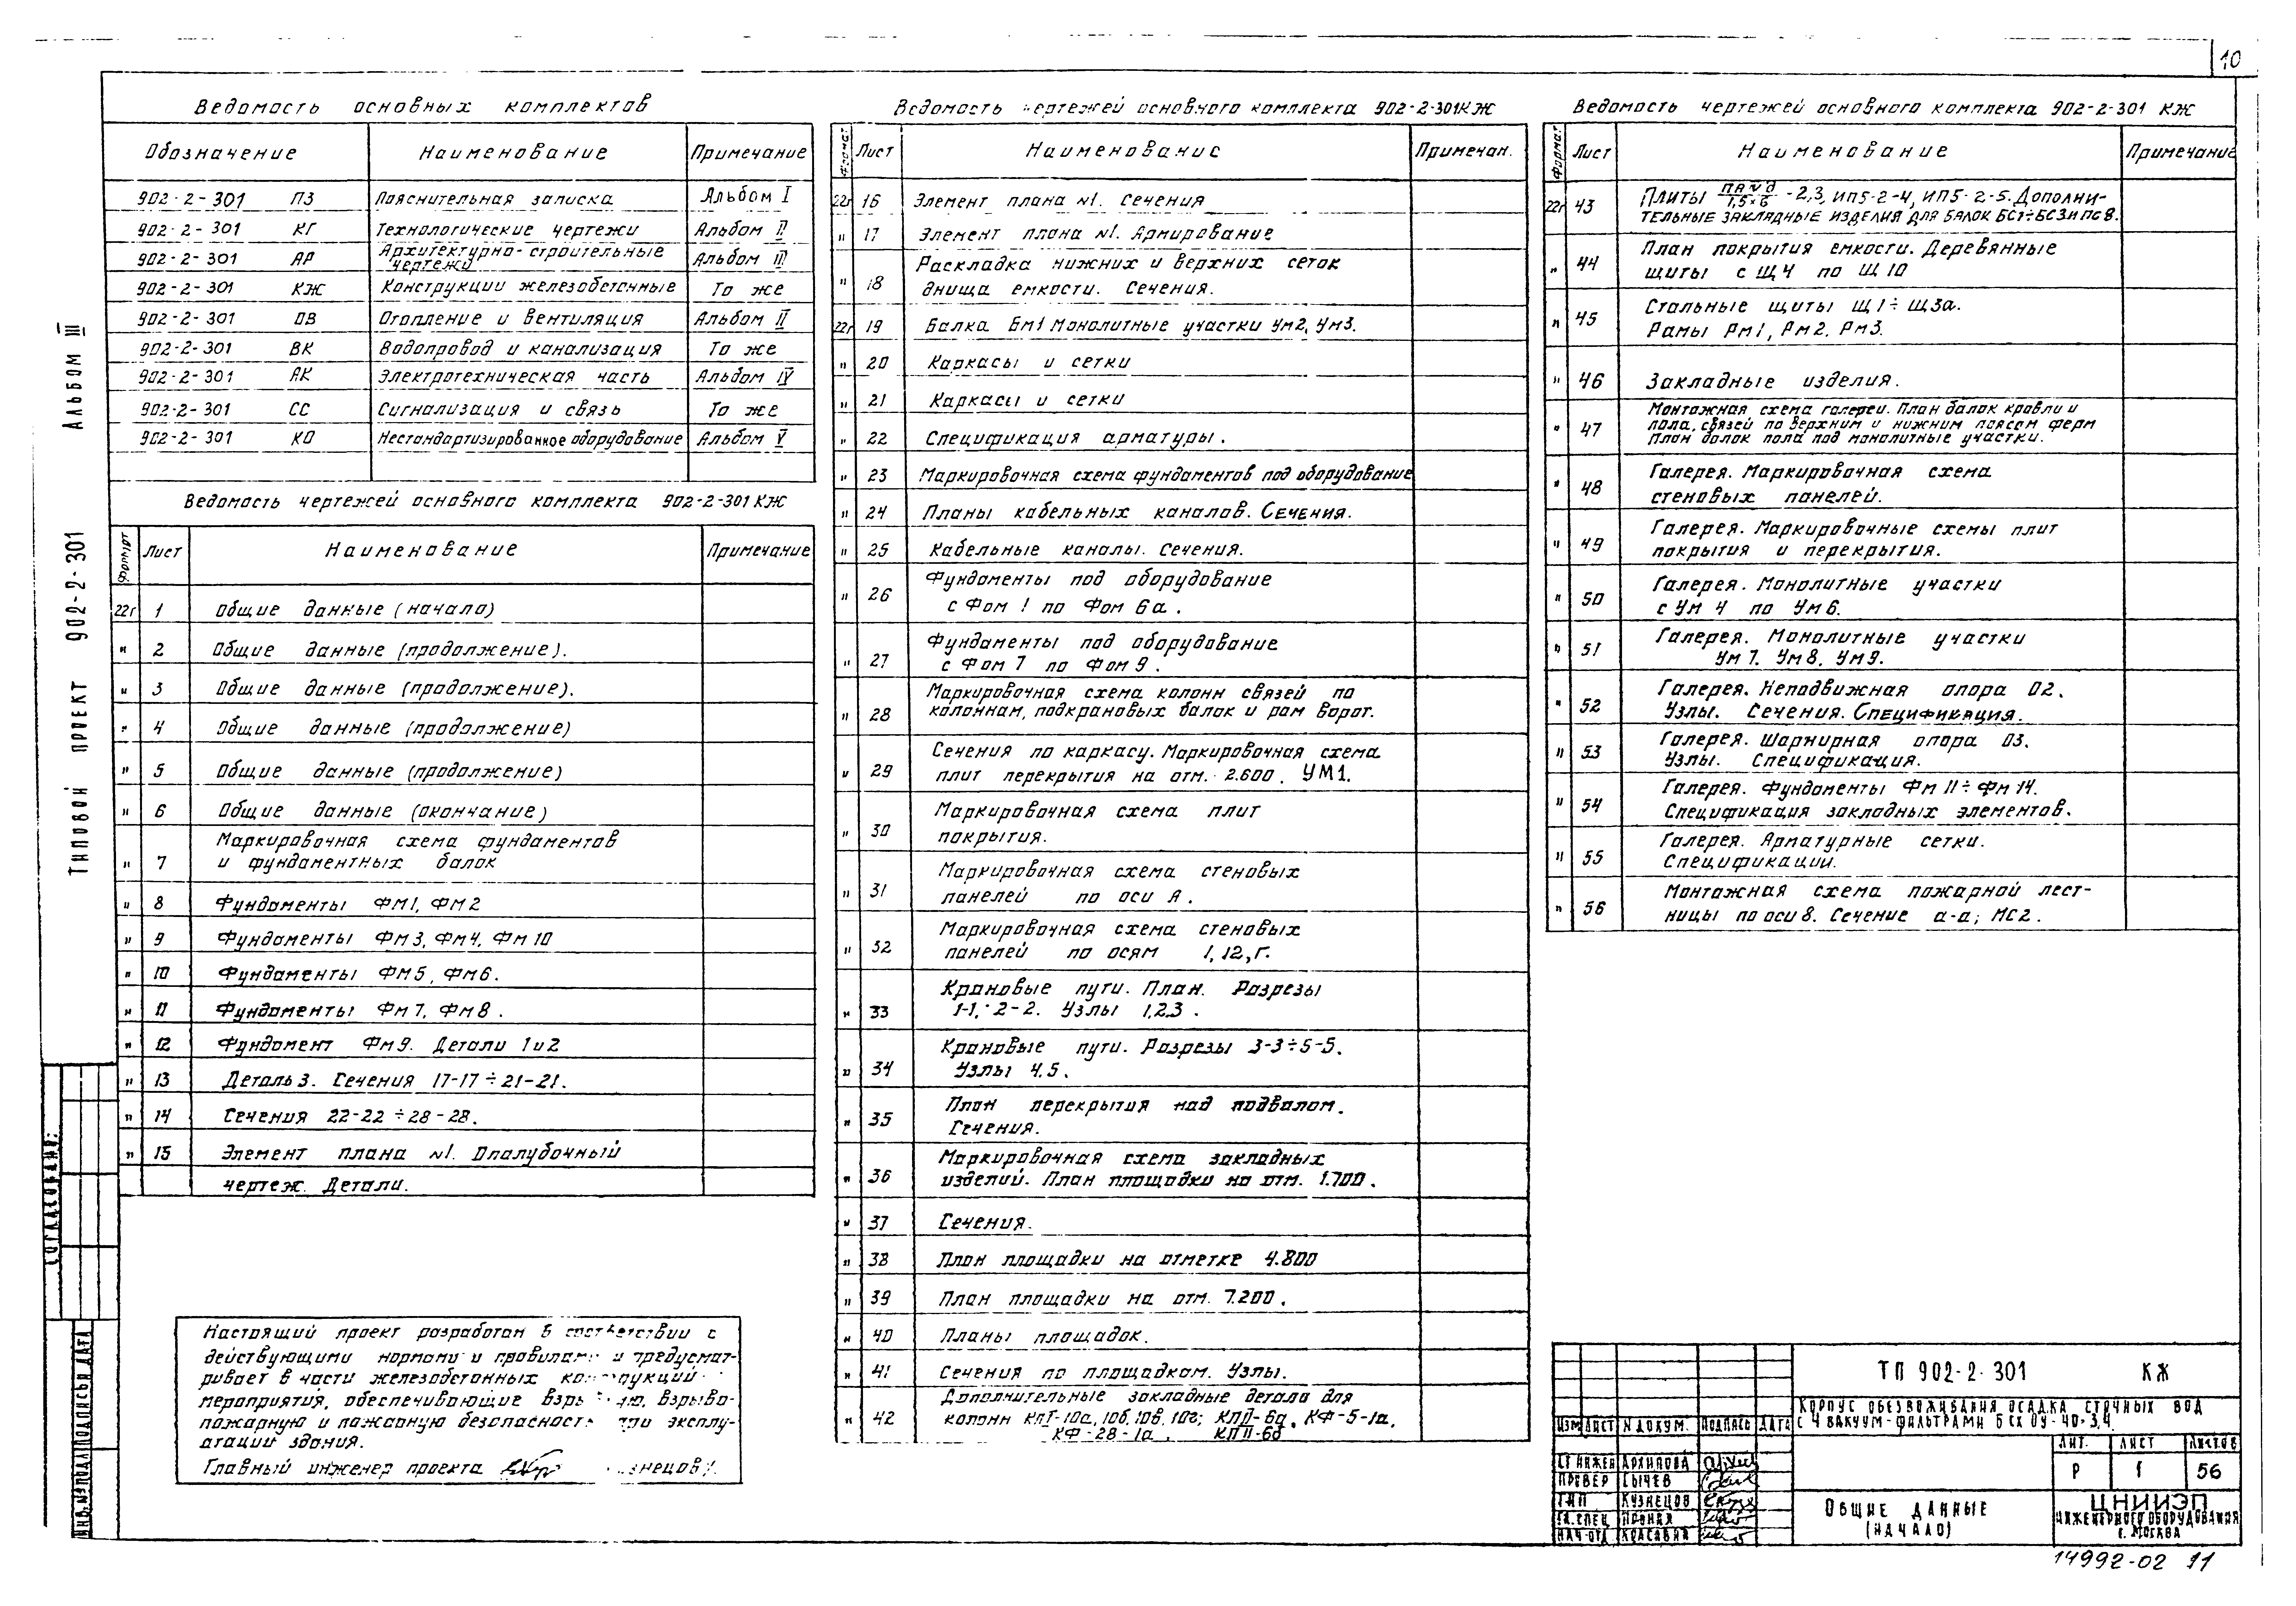 10
Ведомость основных комплектов
Обозначение Наименование Примечание
902-2-301 ПЗ Пояснительная записка Альбом I
902-2-301 КГ Технологические чертежи Альбом II
902-2-301 АР Архитектурно-строительные чертежи Альбом III
902-2-301 КЖ Конструкции железобетонные То же
902-2-301 ОВ Отопление и вентиляция Альбом II
902-2-301 ВК Водопровод и канализация То же
902-2-301 АК Электротехническая часть Альбом IV
902-2-301 СС Сигнализация и связь То же
902-2-301 КО Нестандартизированное оборудование Альбом V
Ведомость чертежей основного комплекта 902-2-301 КЖ
Формат Лист Наименование Примечание
22г 1 Общие данные (начало)
" 2 Общие данные (продолжение).
" 3 Общие данные (продолжение).
" 4 Общие данные (продолжение)
" 5 Общие данные (продолжение)
" 6 Общие данные (окончание)
Маркировочная схема фундаментов
" 7 и фундаментных балок
" 8 Фундаменты ФМ1, ФМ2
" 9 Фундаменты Фм3, Фм4, Фм10
" 10 Фундаменты Фм5, Фм6.
" 11 Фундаменты Фм7, Фм8.
" 12 Фундамент Фм9. Детали 1 и 2
" 13 Деталь 3. Сечения 17-17÷21-21.
" 14 Сечения 22-22÷28-28.
" 15 Элемент плана №1. Опалубочный
чертеж. Детали.
Настоящий проект разработан в соответствии с
действующими нормами и правилами и предусмат-
ривает в части железобетонных конструкций
мероприятия, обеспечивающие взрывную, взрыво-
пожарную и пожарную безопасность при эксплу-
атации здания.
Главный инженер проекта Кузнецов/.
Ведомость чертежей основного комплекта 902-2-301КЖ
Формат Лист Наименование Примечан.
22г 16 Элемент плана №1. Сечения
" 17 Элемент плана №1. Армирование
Раскладка нижних и верхних сеток
" 18 днища емкости. Сечения.
22г 19 Балка Бм1 Монолитные участки Ум2, Ум3.
" 20 Каркасы и сетки
" 21 Каркасы и сетки
" 22 Спецификация арматуры.
" 23 Маркировочная схема фундаментов под оборудование
" 24 Планы кабельных каналов. Сечения.
" 25 Кабельные каналы. Сечения.
Фундаменты под оборудование
" 26 с Фом 1 по Фом 6а.
Фундаменты под оборудование
" 27 с Фом 7 по Фом 9.
Маркировочная схема колонн связей по
" 28 колоннам, подкрановых балок и рам ворот.
Сечения по каркасу. Маркировочная схема
" 29 плит перекрытия на отм. 2.600. УМ1.
Маркировочная схема плит
" 30 покрытия.
Маркировочная схема стеновых
" 31 панелей по оси А.
Маркировочная схема стеновых
" 32 панелей по осям 1, 12, Г.
Крановые пути. План. Разрезы
" 33 1-1, 2-2. Узлы 1,2,3.
Крановые пути. Разрезы 3-3÷5-5.
" 34 Узлы 4,5.
План перекрытия над подвалом.
" 35 Сечения.
Маркировочная схема закладных
" 36 изделий. План площадки на отм. 1.700.
" 37 Сечения.
" 38 План площадки на отметке 4.800
" 39 План площадки на отм. 7.200.
" 40 Планы площадок.
" 41 Сечения по площадкам. Узлы.
Дополнительные закладные детали для
" 42 колонн КпI-10а, 10б, 10в, 10г; КПII-6а, КФ-5-1а,
КФ-28-1а, КПII-6б
Ведомость чертежей основного комплекта 902-2-301 КЖ
Формат Лист Наименование Примечание
22г 43 Плиты ПАVд/1,5×6 -2,3, ИП5-2-4, ИП5-2-5. Дополни-
тельные закладные изделия для балок БС1÷БС3 и ПС8.
План покрытия емкости. Деревянные
" 44 щиты с Щ4 по Щ10
Стальные щиты Щ1÷Щ3а.
" 45 Рамы Рм1, Рм2, Рм3.
" 46 Закладные изделия.
Монтажная схема галереи. План балок кровли и
" 47 пола, связей по верхним и нижним поясам ферм
План балок пола под монолитные участки.
Галерея. Маркировочная схема
" 48 стеновых панелей.
Галерея. Маркировочные схемы плит
" 49 покрытия и перекрытия.
Галерея. Монолитные участки
" 50 с Ум 4 по Ум6.
Галерея. Монолитные участки
" 51 Ум7, Ум8, Ум9.
Галерея. Неподвижная опора О2.
" 52 Узлы. Сечения. Спецификация.
Галерея. Шарнирная опора О3.
" 53 Узлы. Спецификация.
Галерея. Фундаменты Фм11÷Фм14.
" 54 Спецификация закладных элементов.
Галерея. Арматурные сетки.
" 55 Спецификации.
Монтажная схема пожарной лест-
" 56 ницы по оси 8. Сечение а-а; МС2.
ТП 902-2-301 КЖ
Корпус обезвоживания осадка сточных вод
с 4 вакуум-фильтрами БсхОУ-40-3,4
Изм Лист № докум. Подпись Дата
Лит. Лист Листов
Р 1 56
Ст инжен Архипова
Провер Сычев
ГИП Кузнецов
Гл.спец Пронин
Нач.отд Красавин
Общие данные
(начало)
ЦНИИЭП
инженерного оборудования
г. Москва
14992-02 11
Типовой проект 902-2-301 Альбом III
Согласовано:
Инв.№ подл. Подпись и дата